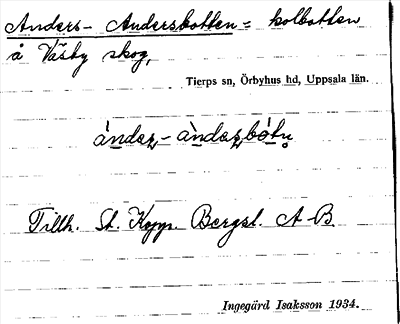 Anders-Andersbotten = kolbotten
å Väsby skog,
Tierps sn, Örbyhus hd, Uppsala län.
àndaʂ-àndaʂbót̥n̥
Tillh. St. Kopp. Bergsl. A-B.
Ingegärd Isaksson 1934.